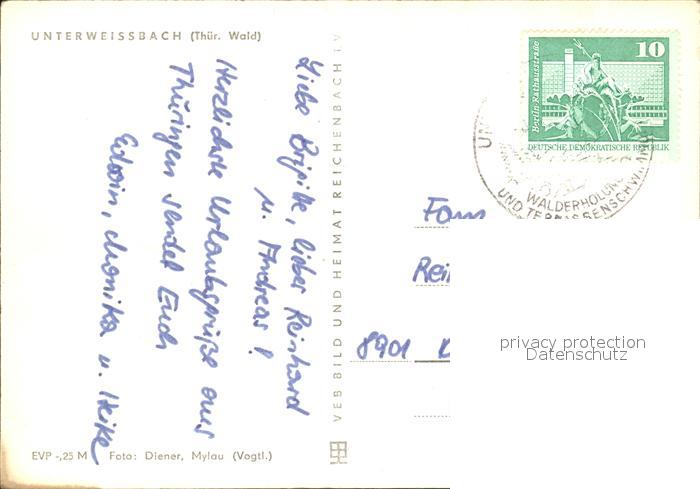 UNTERWEISSBACH (Thür. Wald)
Liebe Brigitte, lieber Reinhard
u. Andreas!
Herzlichste Urlaubsgrüße aus
Thüringen sendet Euch
Edwin, Monika u. Heike
EVP -,25 M Foto: Diener, Mylau (Vogtl.)
VEB BILD UND HEIMAT REICHENBACH i. V.
10
Berlin · Rathausstraße
DEUTSCHE DEMOKRATISCHE REPUBLIK
WALDERHOLUNG
UND TERRASSENSCHWIMM
Fam
Rei
8901
privacy protection
Datenschutz